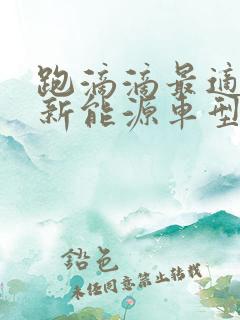 跑滴滴最适
新能源车型
铅色
未经同意禁止转载